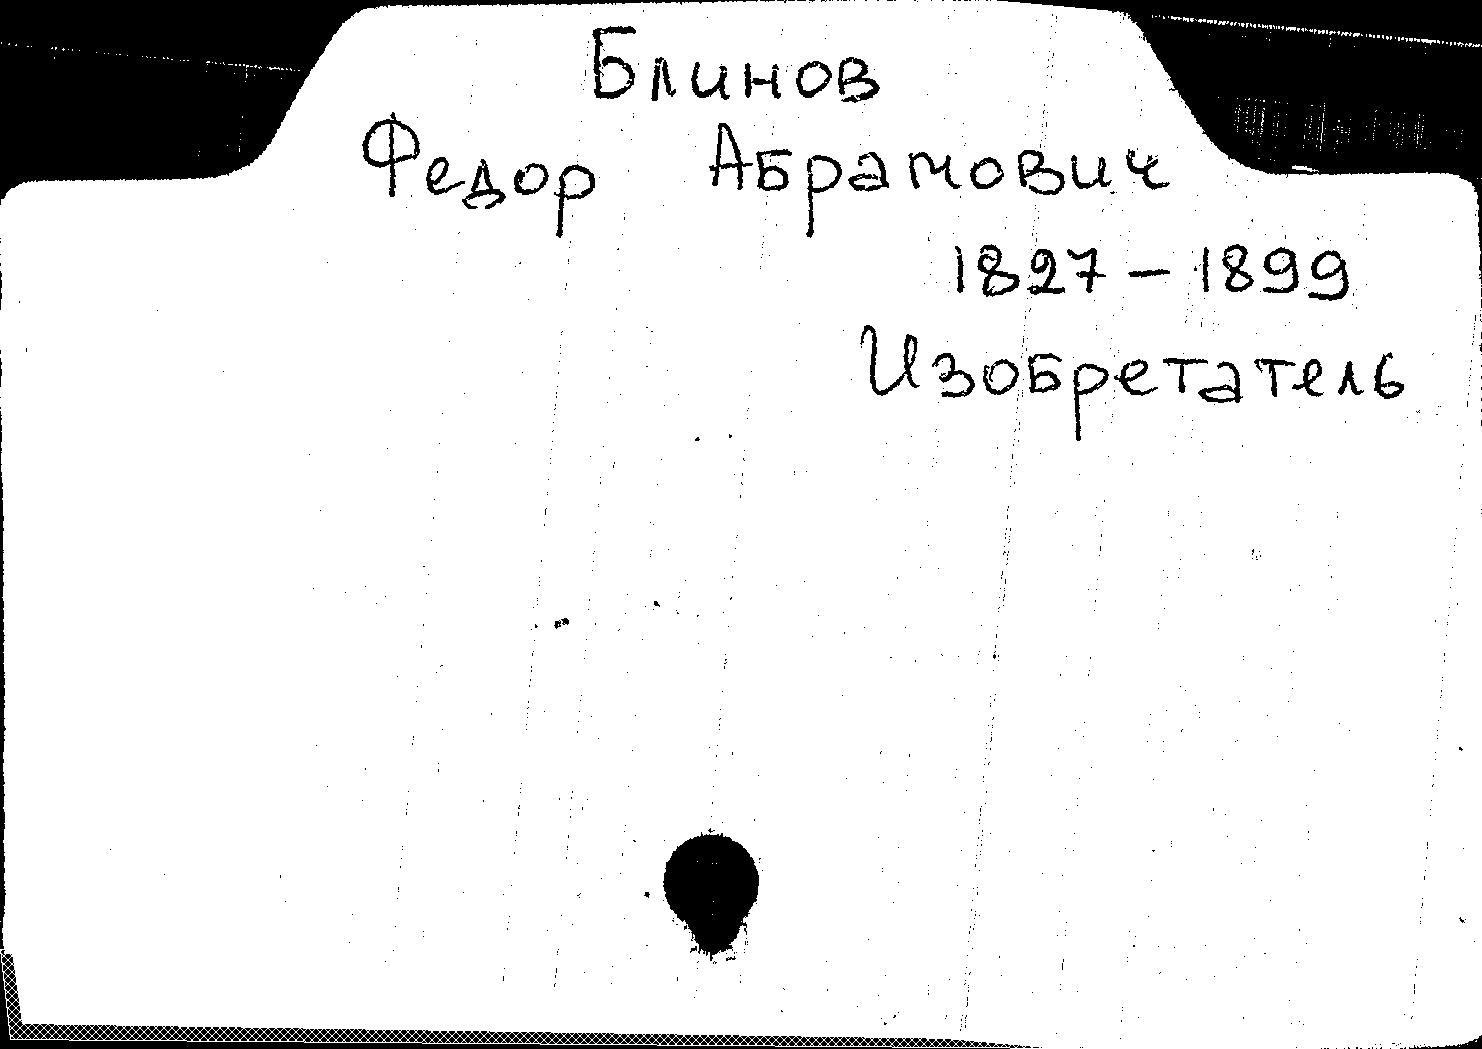 Блинов
Федор Абрамович
1827 – 1899
Изобретатель